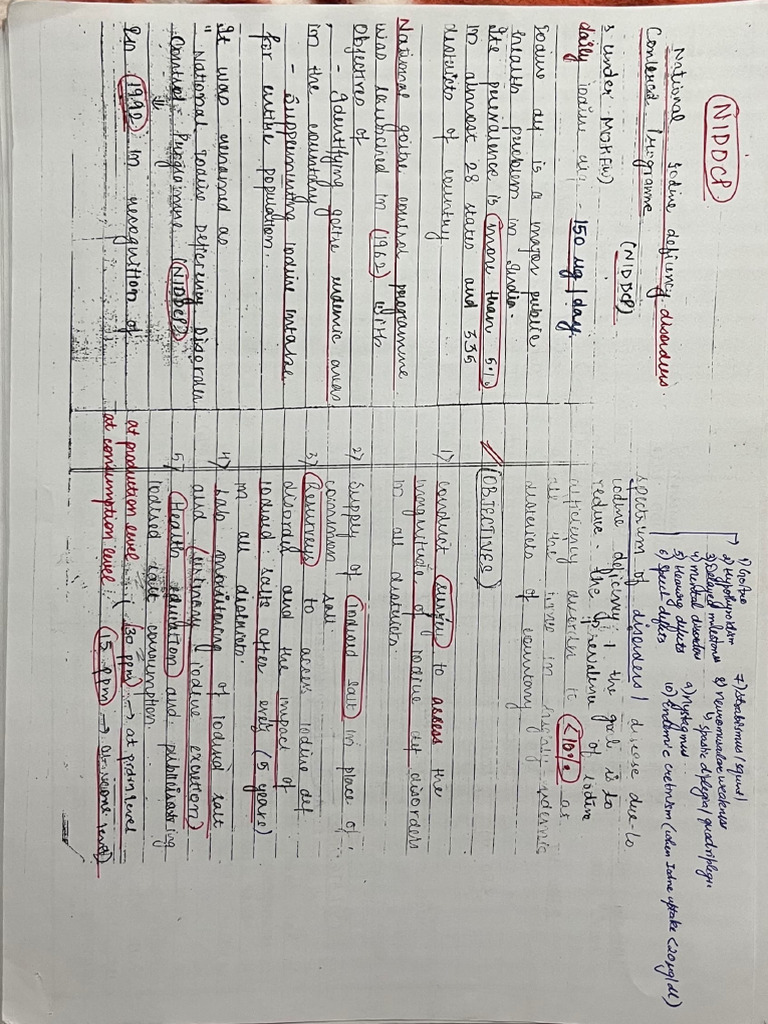 NIDDCP
National Iodine deficiency disorders
Control Programme
(NIDDCP)
3 under MOHFW)
daily iodine - 150 µg/day.
Iodine def is a major public
health problem in India.
Its prevalence is more than 5%
in almost 28 states and 335
districts of country
National goitre control programme
was launched in (1962) with
Objectives of
- Identifying goitre endemic areas
in the country
- Supplementing iodine intake
for entire population.
It was renamed as
" National Iodine Deficiency Disorder
Control Programme (NIDDCP)
In (1992) in recognition of
1) Goitre
2) Hypothyroidism
3) Delayed milestones
4) mental disorders
5) Hearing defects
6) Speech defects
7) Strabismus (squint)
8) neuromuscular weakness
↳ spastic diplegia/quadriplegia
9) Nystagmus
10) Endemic cretinism (when Iodine uptake <20µg/dl)
spectrum of disorders / disease due to
iodine deficiency. the goal is to
reduce the prevalence of iodine
deficiency disorder to <10% as
the in endemic
districts of country
// (OBJECTIVES)
1) conduct survey to assess the
magnitude of iodine def disorders
in all districts.
2) Supply of iodised salt in place of
common salt.
3) Resurveys to access iodine def
disorder and the impact of
iodised salts after every (5 years)
in all districts.
4) Lab monitoring of iodised salt
and (urinary iodine excretion)
5) Health education and publicising
iodised salt consumption.
at production level : (30 ppm) → at prodn level
at consumption level : (15 ppm) →